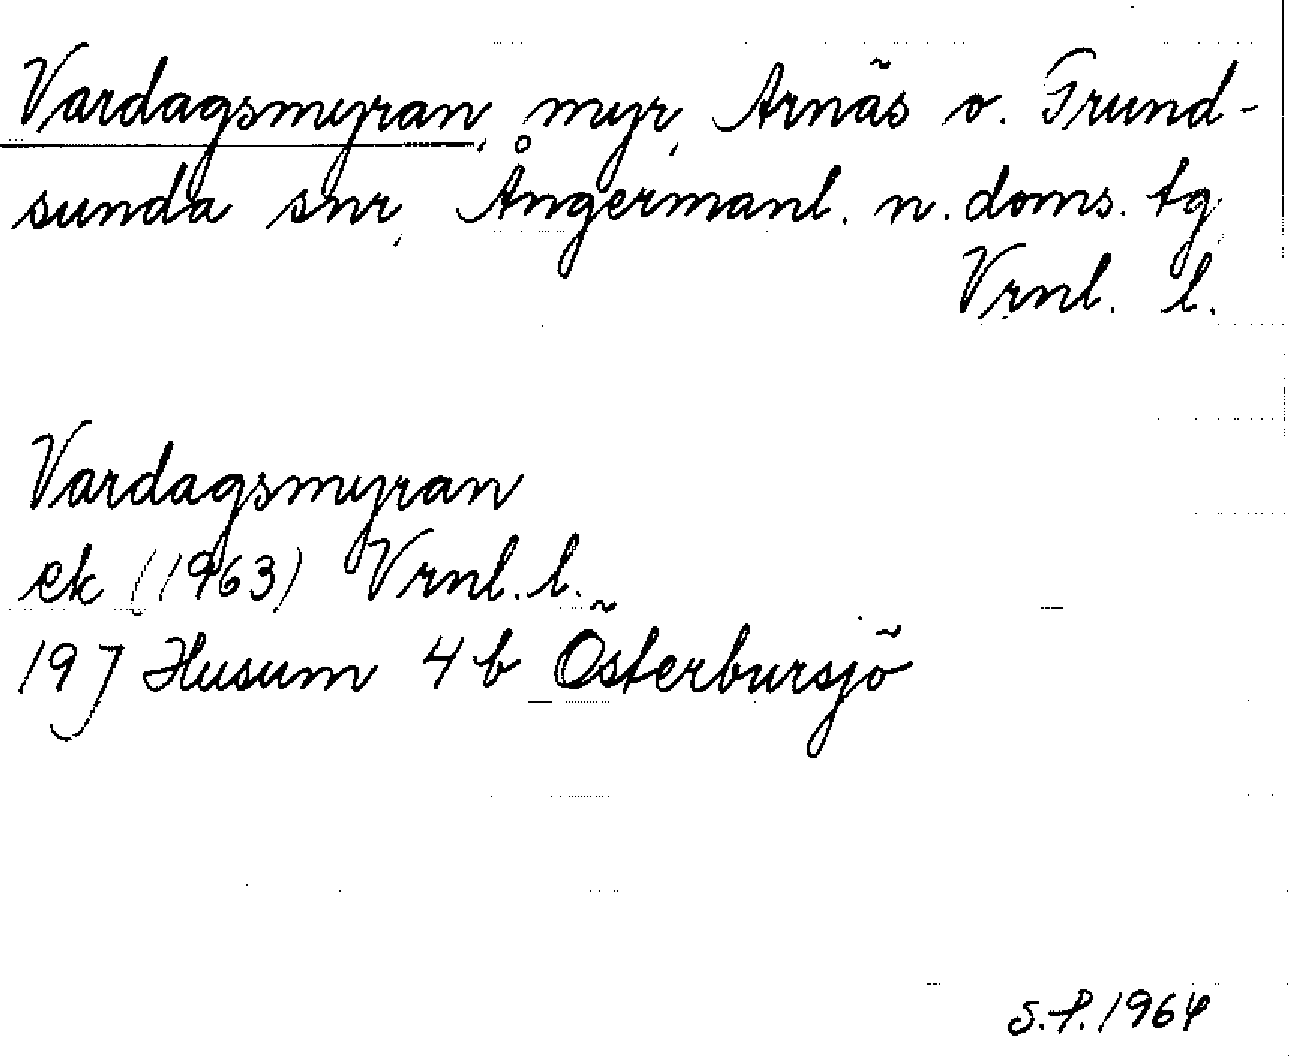 Vardagsmyran, myr, Arnäs o. Grund-
sunda snr, Ångermanl. n. doms. tg,
Vrnl. l.
Vardagsmyran
ek (1963) Vrnl. l.
19 J Husum 4 b Österbursjö
S.P. 1964